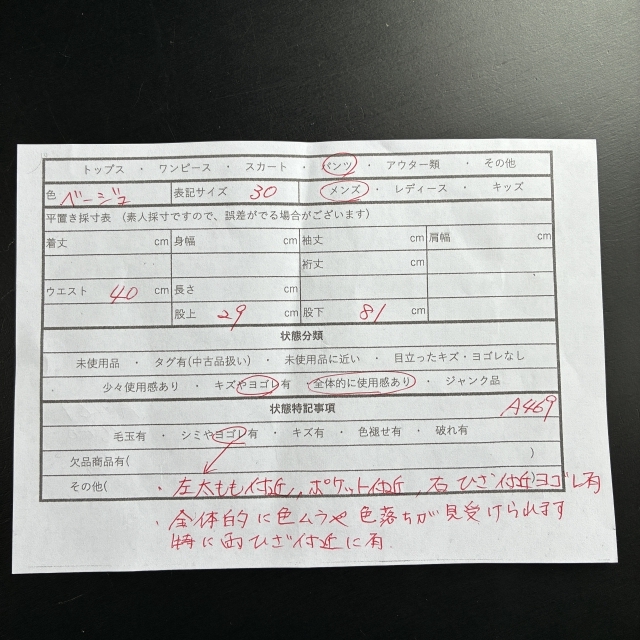 トップス ・ ワンピース ・ スカート ・ パンツ ・ アウター類 ・ その他
色 ベージュ 表記サイズ 30 メンズ ・ レディース ・ キッズ
平置き採寸表 (素人採寸ですので、誤差がでる場合がございます)
着丈 cm 身幅 cm 袖丈 cm 肩幅 cm
cm 裄丈 cm
ウエスト 40 cm 長さ cm
股上 29 cm 股下 81 cm
状態分類
未使用品 ・ タグ有(中古品扱い) ・ 未使用品に近い ・ 目立ったキズ・ヨゴレなし
少々使用感あり ・ キズやヨゴレ有 ・ 全体的に使用感あり ・ ジャンク品
状態特記事項 A469
毛玉有 ・ シミやヨゴレ有 ・ キズ有 ・ 色褪せ有 ・ 破れ有
欠品商品有( )
その他( ・左太もも付近、ポケット付近、右ひざ付近ヨゴレ有 )
・全体的に色ムラや色落ちが見受けられます
特に両ひざ付近に有